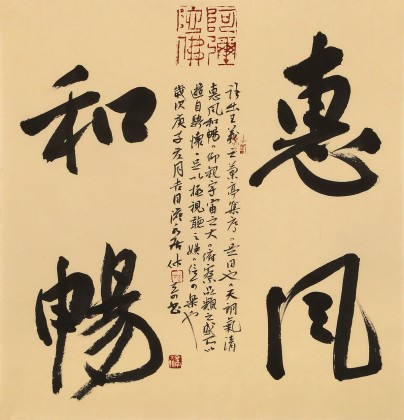 惠風
和暢
阿彌陀佛
出王羲之蘭亭集序。是日也。天朗氣清
惠風和暢。仰觀宇宙之大。俯察品類之盛。所以
遊目騁懷。足以極視聽之娛。信可樂也
歲次庚子月吉日書